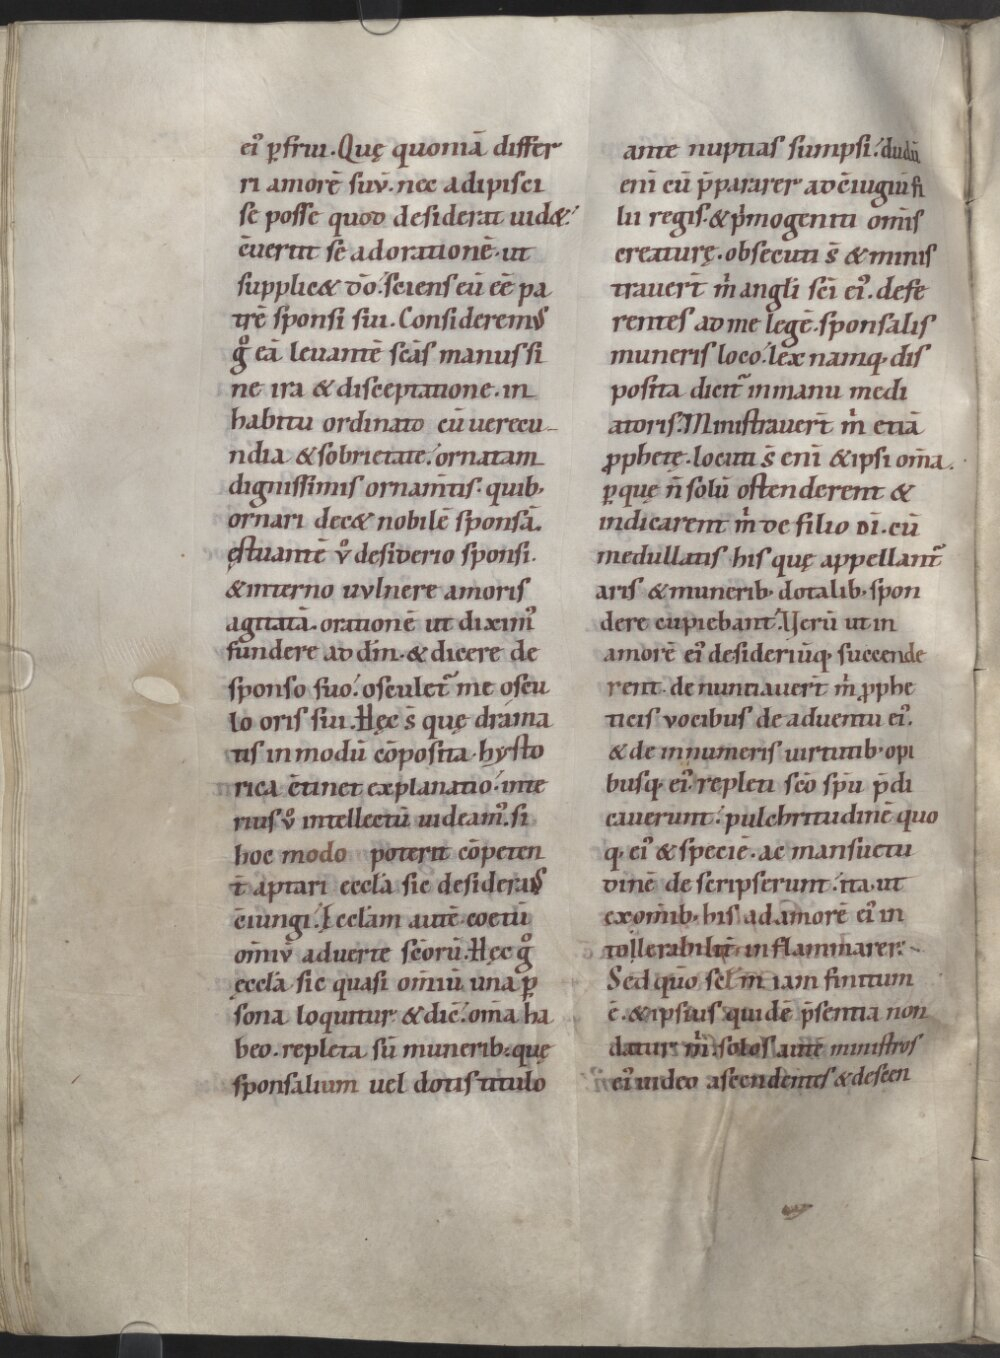 ei᾽ ꝑfrui. Quę quoniā differ
ri amorē suū. nec adipisci
se posse quod desiderat uid&.᾽
c̄uertit sē ad orationē. ut
supplic& dō.᾽ sciens eū eē pa
trē sponsi sui. Considerem᷒
g̊ eā leuantē sc̄as manus si
ne ira & disceptatione. in
habitu ordinato cū uerecu-
ndia & sobrietate.᾽ ornatam
dignissimis ornam̄tis. quib;
ornari dec& nobilē sponsā.
ęstuantē v̊ desiderio sponsi.
& interno uulnere amoris
agitatā. orationē ut dixim᾽
fundere ad dn̄m. & dicere de
sponso suo.᾽ osculet᷑ me oscu
lo oris sui. Hęc s̄ quę drama
tis in modū cōposita. hysto
rica c̄tinet explanatio.᾽ inte
rius v̊ intellectū uideam᾽. si
hoc modo poterit cōpeten
t̄ aptari ecclā sic desiderās
c̄iungi.᾽ Ecclām autē coetū
om̄iū aduerte sc̄orū. Hęc g̊
ęcclā sic quasi om̄iū una ꝑ
sona loquitur & dic̄.᾽ om̄a ha
beo. repleta sū munerib; quę
sponsalium uel dotis titulo
ante nuptias sumpsi.᾽ dudū
eni cū p̄pararer ad c̄iugiū fi
lii regis. & p̄mogeniti om̄is
creaturę. obsecuti s̄ & minis
trauer̄t m̊ angli sc̄i ei᾽. defe
rentes ad me legē. sponsalis
muneris loco.᾽ lex namq; dis
posita dicit᷑ in manu medi
atoris. Ministrauer̄t m̊ etiā
ꝓphetę. locuti s̄ eni & ipsi om̄a.
ꝑ quę n̄ solū ostenderent &
indicarent m̊ de filio dī. cū
medullatis his quę appellant᷑
aris & munerib; dotalib; spon
dere cupiebant.᾽ Uerū ut in
amorē ei᾽ desideriūq; succende
rent. denuntiauer̄t m̊ ꝓphe
ticis vocibus de aduentu ei᾽.
& de innumeris uirtutib; opi
busq; ei᾽. repleti sc̄o sp̄u p̄di
cauerunt.᾽ pulchritudinē quo
q; ei᾽ & speciē. ac mansuetu
dinē descripserunt.᾽ ita. ut
ex om̄ib; his ad amorē ei᾽ in
tollerabilit̄ inflammarer.
Sed quo sc̄l̄m iam finitum
ē. & ipsius quidē p̄sentia non
datur m̊. solos autē ministros
ei᾽ uideo ascendentes & descen